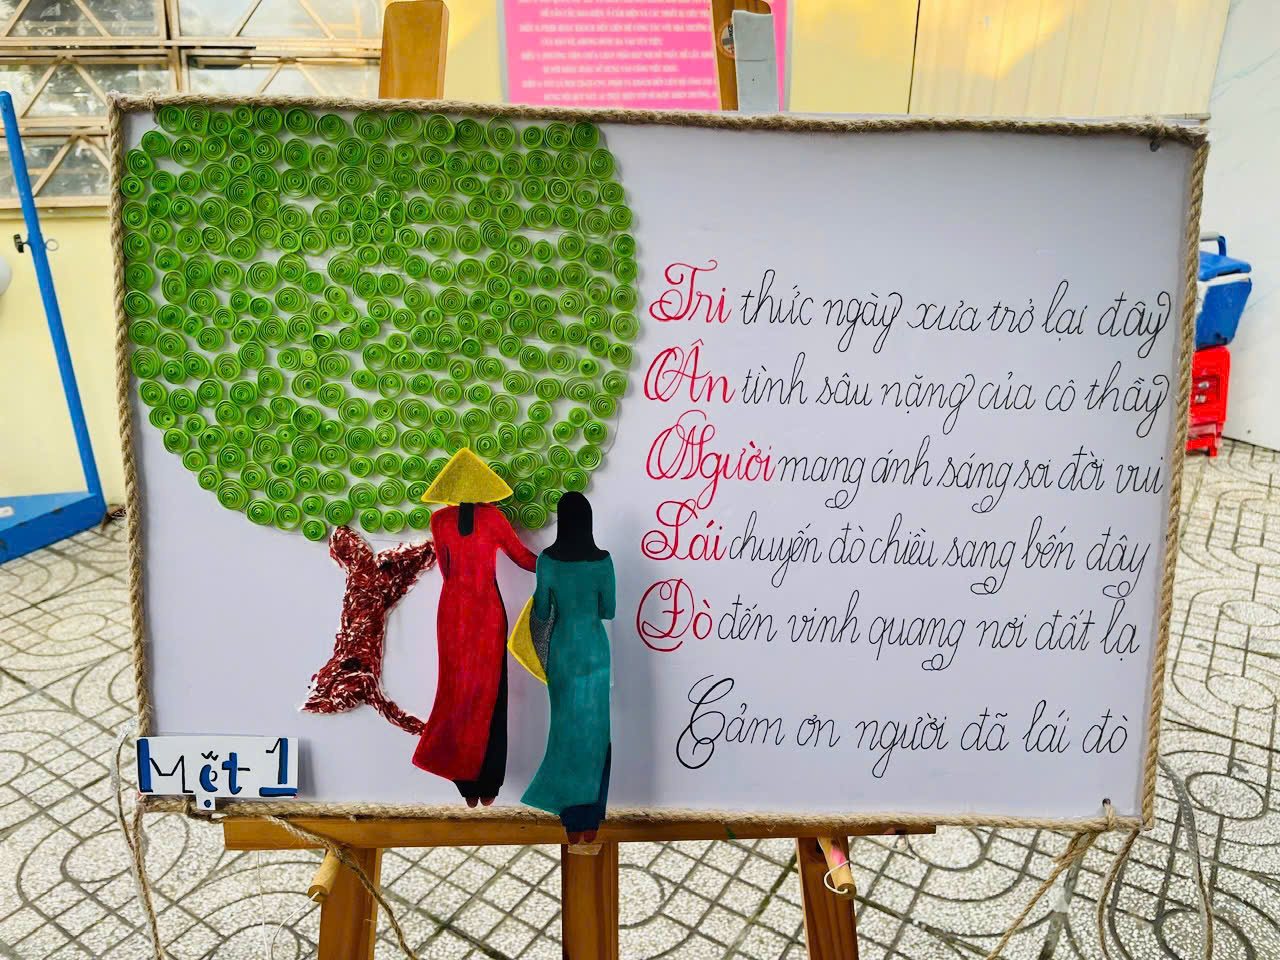 Tri thức ngày xưa trở lại đây
Ân tình sâu nặng của cô thầy
Người mang ánh sáng soi đời vui
Lái chuyến đò chiều sang bến đây
Đò đến vinh quang nơi đất lạ
Cảm ơn người đã lái đò
Mệt 1